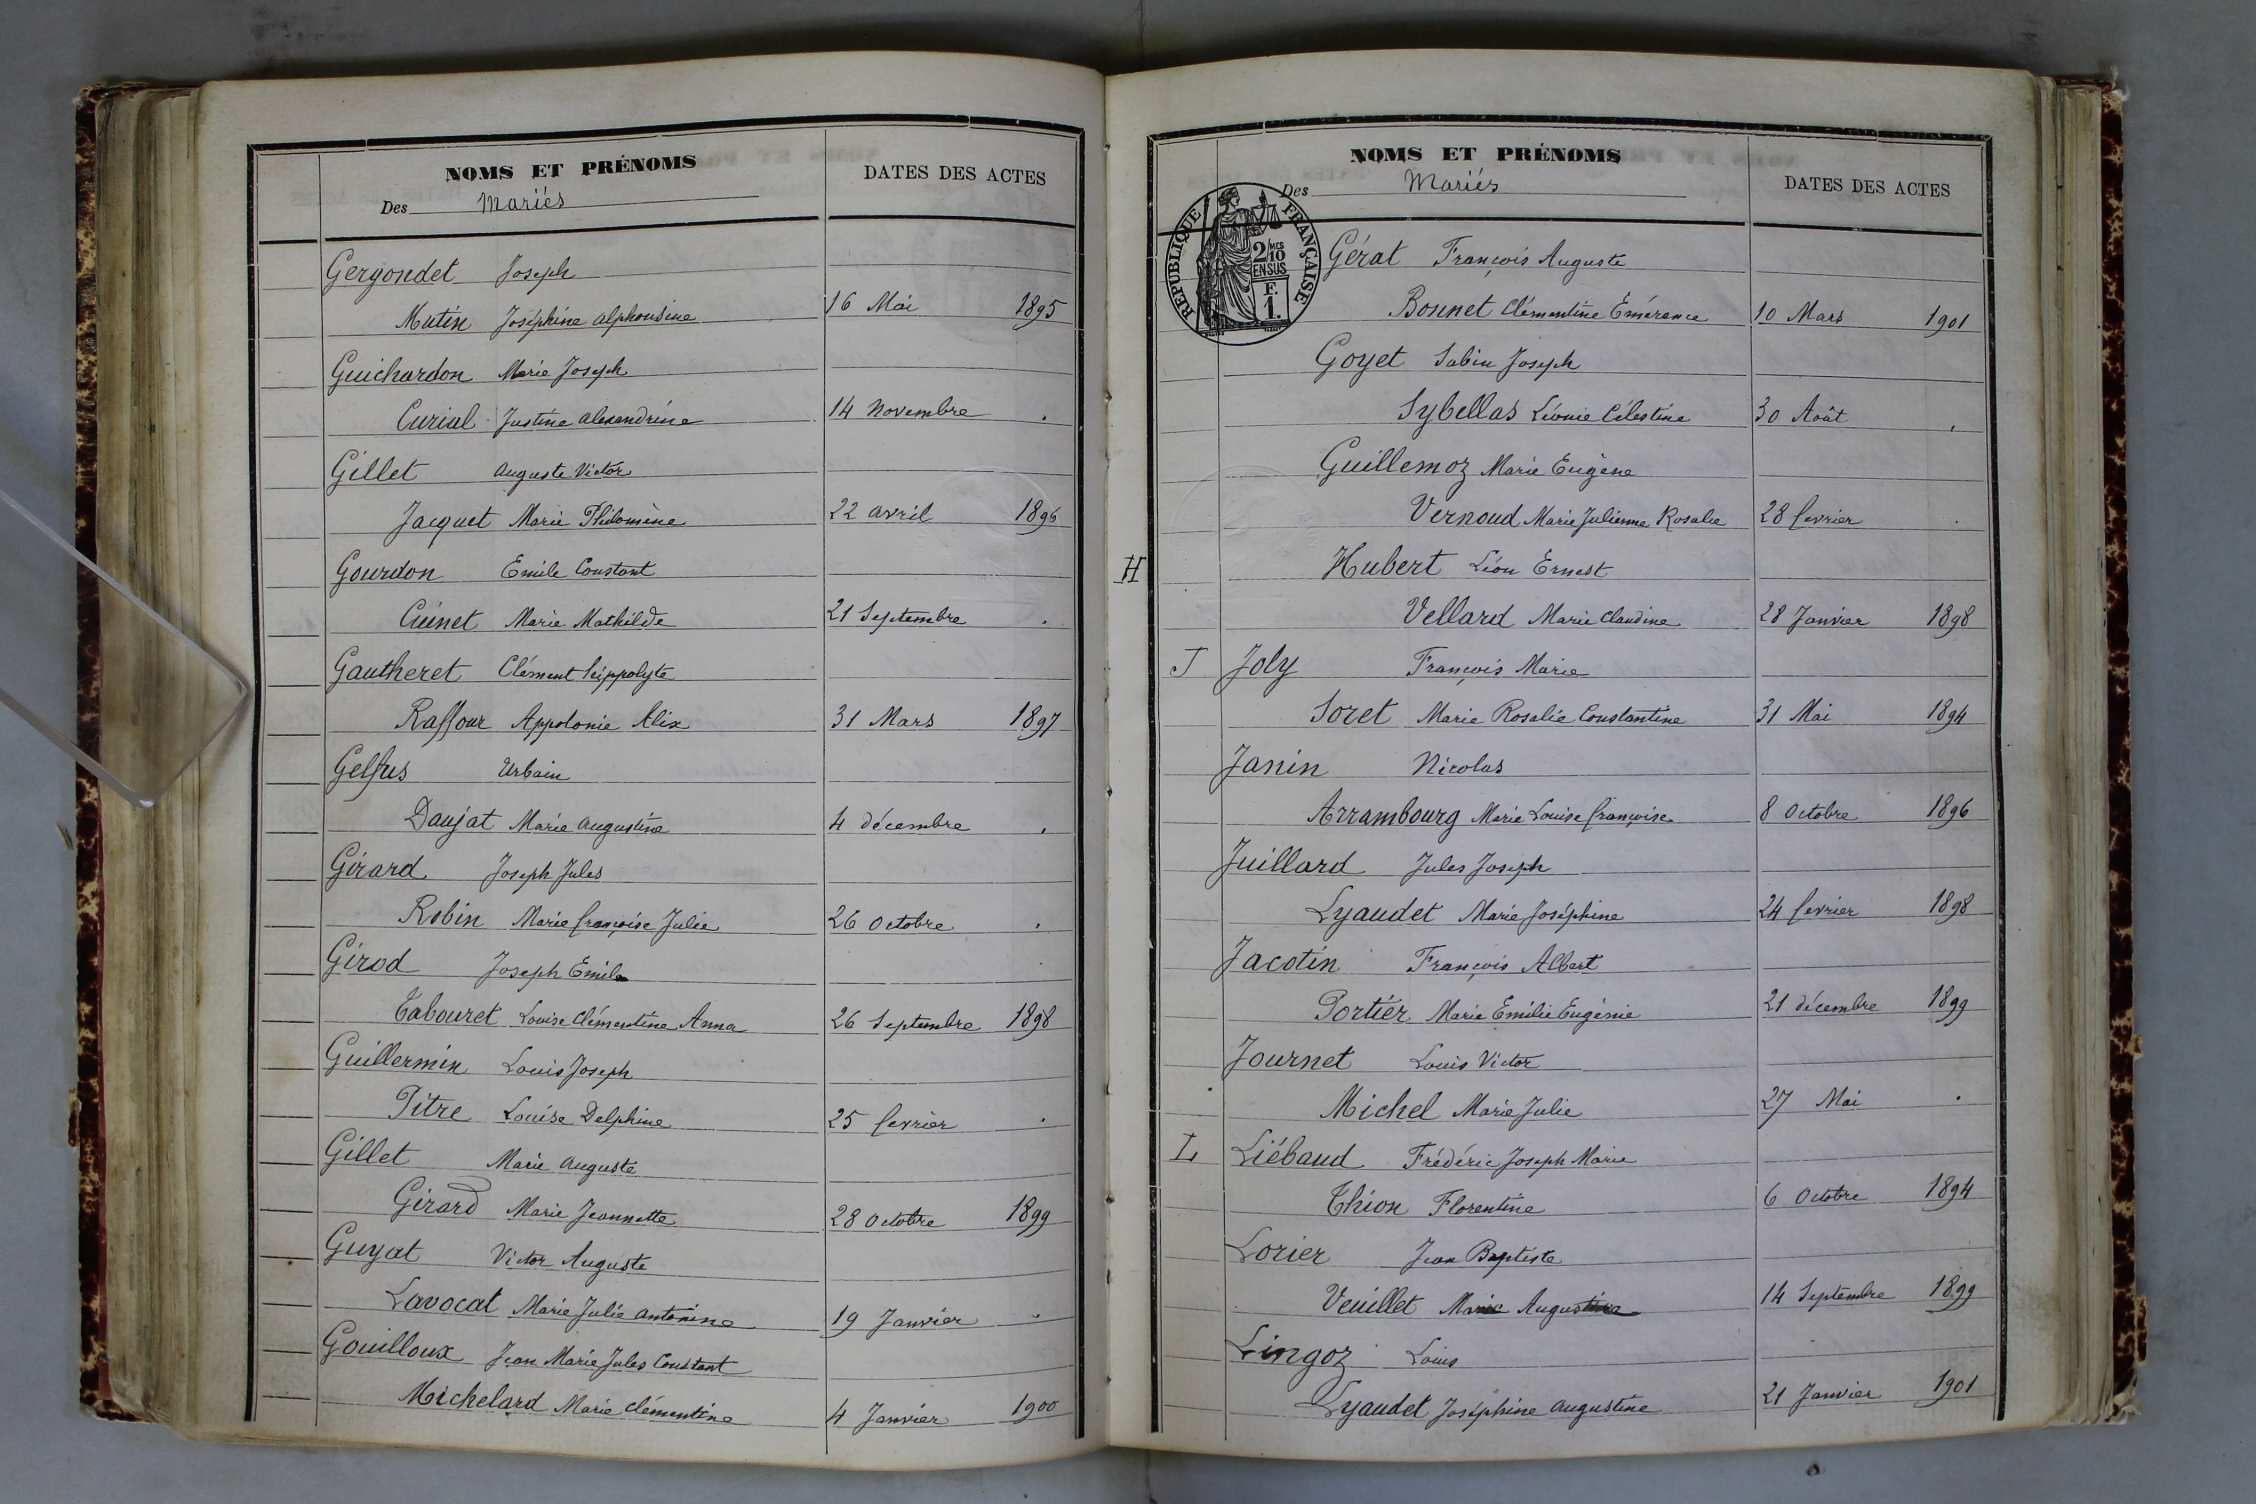 NOMS ET PRÉNOMS
DATES DES ACTES
Des Mariés
Gergondet Joseph
Mutin Joséphine Alphonsine 16 Mai 1895
Guichardon Marie Joseph
Curial Justine Alexandrine 14 Novembre .
Gillet Auguste Victor
Jacquet Marie Philomène 22 avril 1896
Gourdon Emile Constant
Cuinet Marie Mathilde 21 Septembre .
Gautheret Clément hippolyte
Raffour Appolonie Alix 31 Mars 1897
Gelfus Urbain
Daujat Marie Augustine 4 décembre .
Girard Joseph Jules
Robin Marie françoise Julie 26 Octobre .
Girod Joseph Emile
Tabouret Louise Clémentine Anna 26 Septembre 1898
Guillermin Louis Joseph
Pitre Louise Delphine 25 fevrier .
Gillet Marie Auguste
Girard Marie Jeannette 28 Octobre 1899
Guyat Victor Auguste
Lavocat Marie Julie Antonine 19 Janvier .
Gouilloux Jean Marie Jules Constant
Michelard Marie Clémentine 4 Janvier 1900
NOMS ET PRÉNOMS
DATES DES ACTES
Des Mariés
RÉPUBLIQUE FRANÇAISE
2/10 MES
EN SUS
F.
1.
Gérat François Auguste
Bonnet Clémentine Émérance 10 Mars 1901
Goyet Sabin Joseph
Sybellas Léonie Célestine 30 Août .
Guillemoz Marie Eugène
Vernoud Marie Julienne Rosalie 28 fevrier .
H Hubert Léon Ernest
Vellard Marie Claudine 28 Janvier 1898
J Joly François Marie
Soret Marie Rosalie Constantine 31 Mai 1894
Janin Nicolas
Arrambourg Marie Louise françoise 8 Octobre 1896
Juillard Jules Joseph
Lyaudet Marie Joséphine 24 fevrier 1898
Jacotin François Albert
Portier Marie Emilie Eugénie 21 décembre 1899
Journet Louis Victor
Michel Marie Julie 27 Mai .
L Liébaud Frédéric Joseph Marie
Thion Florentine 6 Octobre 1894
Lorier Jean Baptiste
Veuillet Marie Augustine 14 Septembre 1899
Lingoz Louis
Lyaudet Joséphine Augustine 21 Janvier 1901